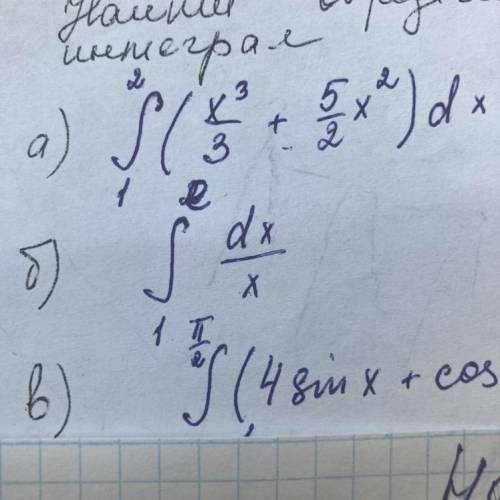 Найти
интеграл
а) ∫₁² (x³/3 + 5/2 x²) dx
б) ∫₁ᵉ dx/x
в) ∫^(π/2) (4 sin x + cos